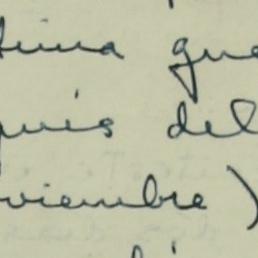 tima que
quis del
viembre)